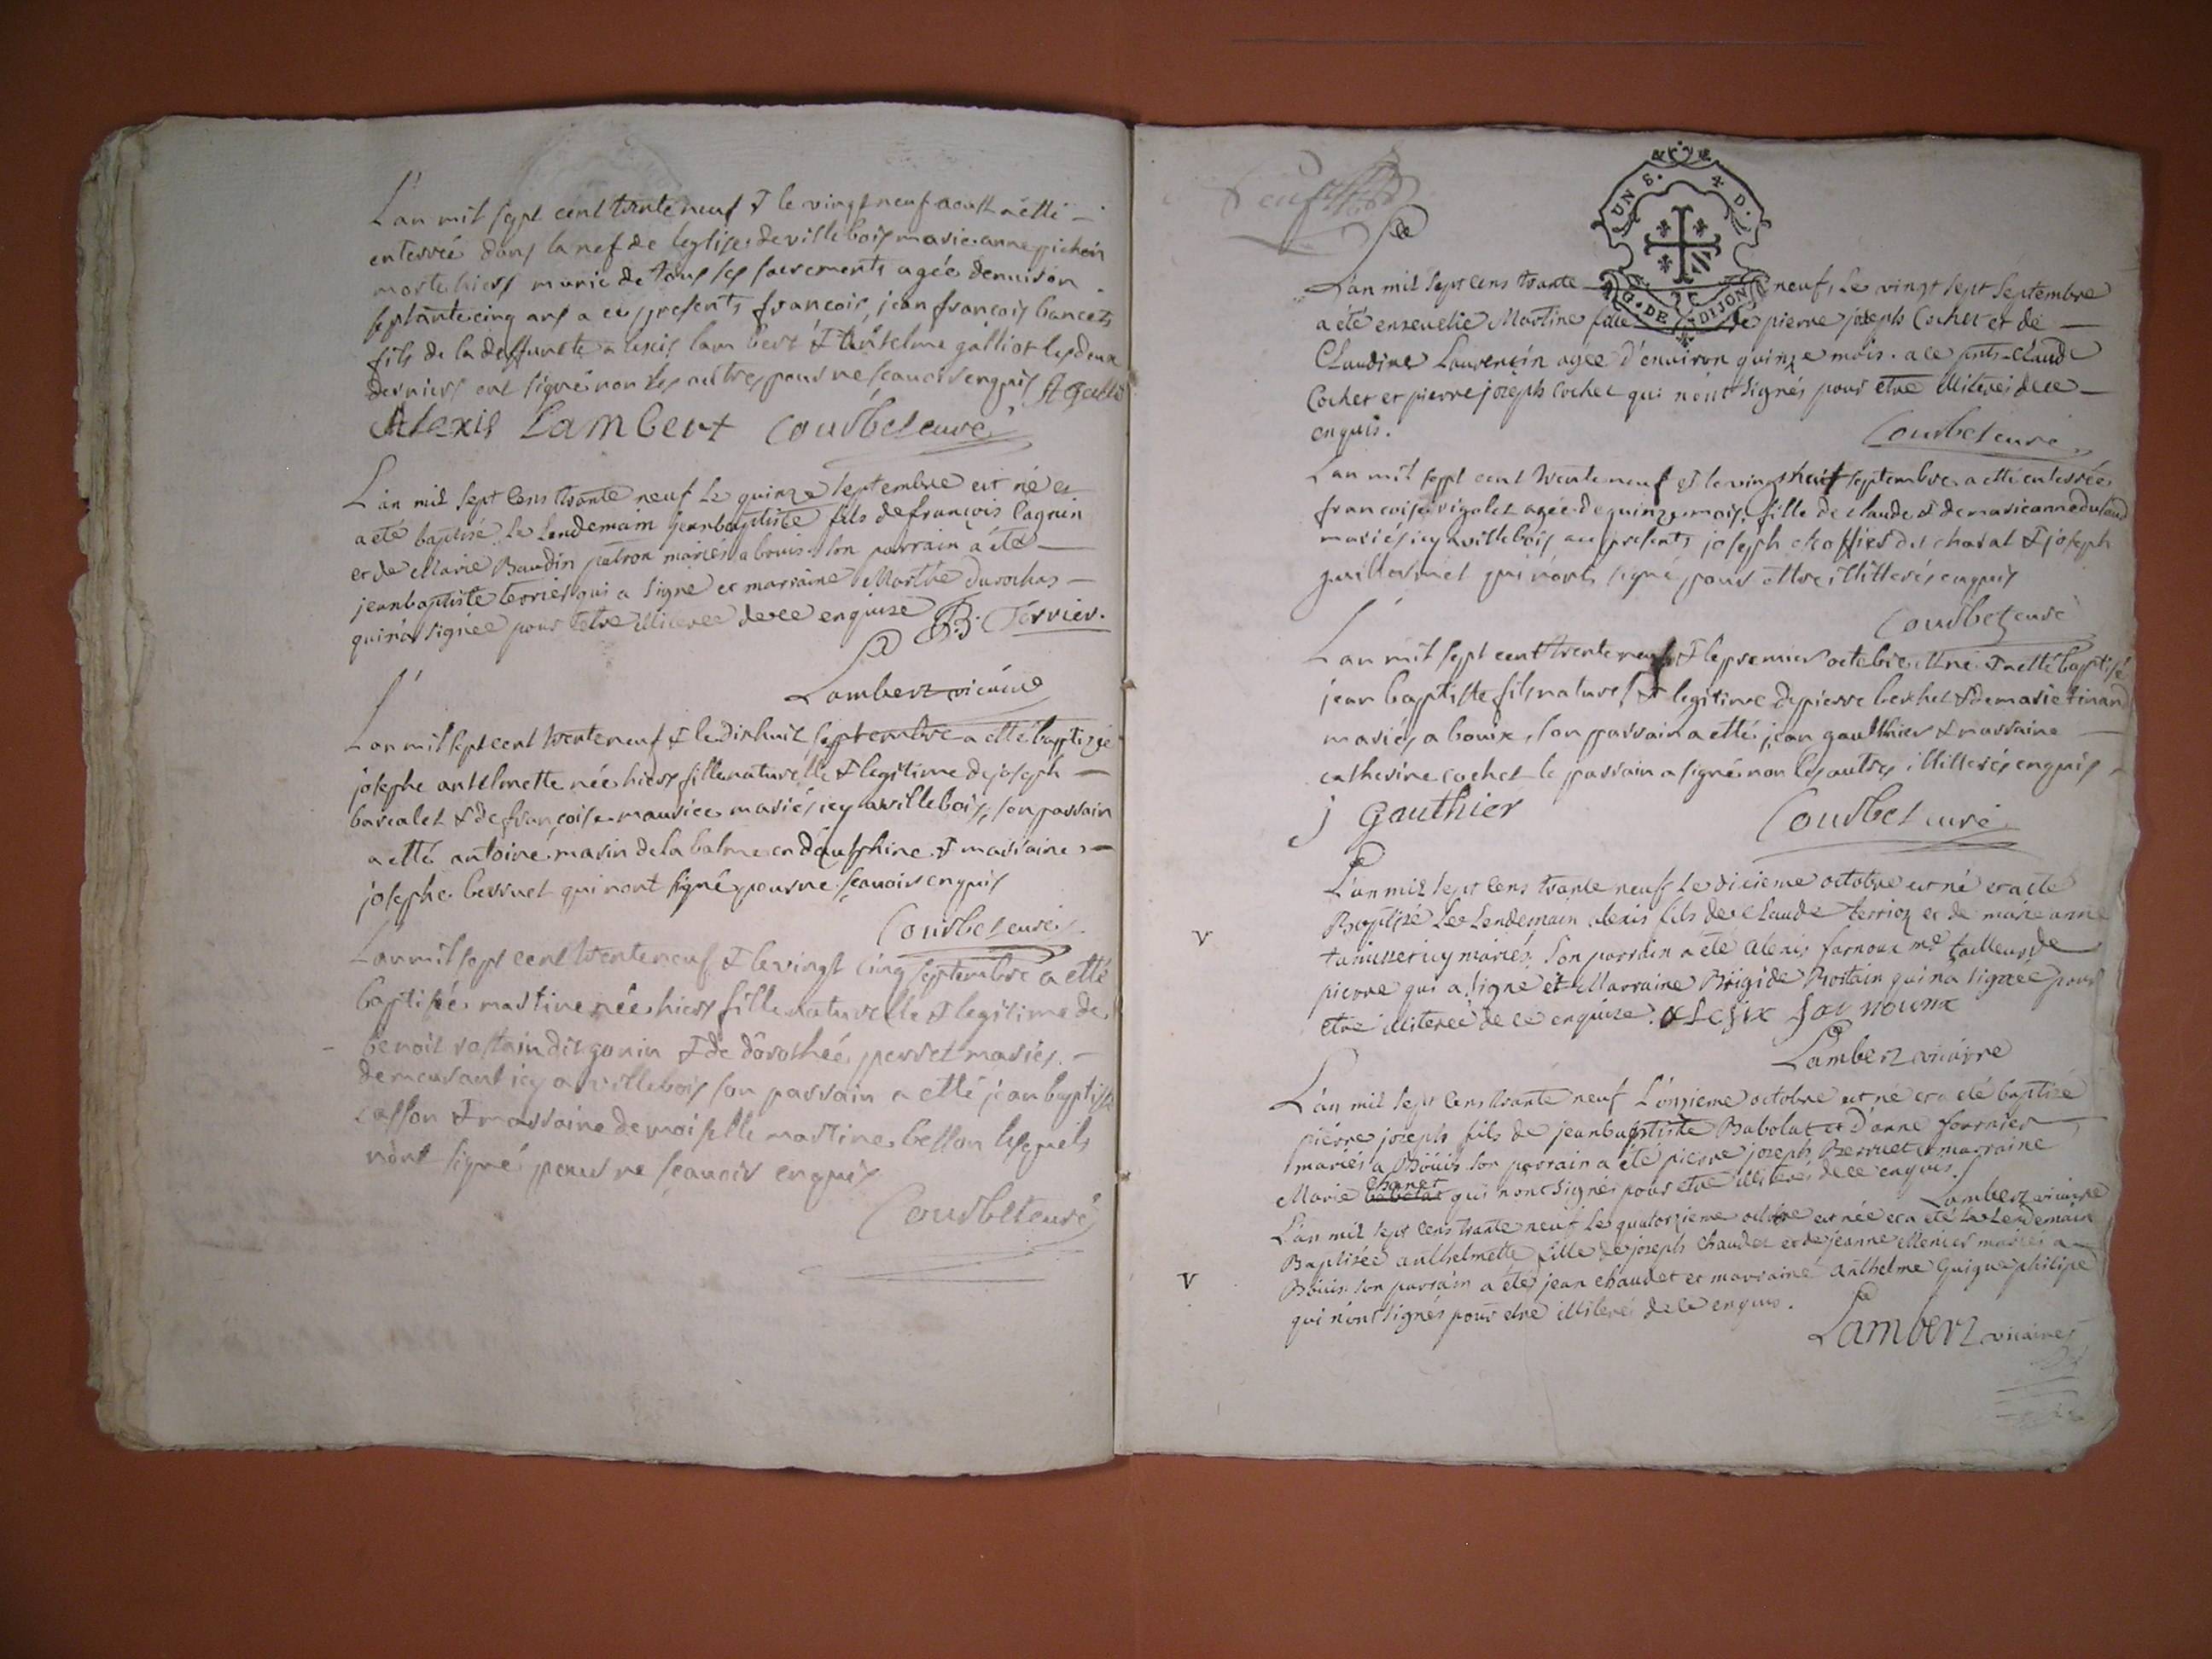 L'an mil sept cent trente neuf & le vingt neuf aoust a etté
enterrée dans la nef de leglise de villebois marie anne pichon
morte hiers munie de tous ses sacrements agée denviron
septante cinq ans a ce presents francois, jean françois bancets
fils de la deffuncte alexis lambert & anselme galliot les deux
derniers ont signé non les autres pour ne scauoir enquis A Galliot
Alexis Lambert Courbet curé
L'an mil sept cens trante neuf le quinze septembre est né et
a été baptisé le lendemain jeanbaptiste fils de françois Cagnin
et de Marie Baudin patron mariés a bouis. son parrain a été
jeanbaptiste terrier qui a signé et marraine Marthe durochas
qui n'a signée pour etre illiterée de ce enquise J.B. Terrier.
Lambert vicaire
L'an mil sept cent trente neuf & le dixhuit septembre a etté baptizée
josephe anthelmette née hiers fille naturelle & legitime de joseph
barcalet & de françoise maurice mariés icy a villebois, son parrain
a etté antoine marin de la balme en dauphine & marraine
josephe berruet qui n'ont signé pour ne scauoir enquis
Courbet curé
L'an mil sept cent trente neuf & le vingt cinq septembre a etté
baptisée martine née hiers fille naturelle & legitime de
benoit rostain dit gonin & de dorothée perret mariés
demeurant icy a villebois son parrain a etté jean baptiste
& marraine demoiselle martine besson lesquels
n'ont signé pour ne scauoir enquis
Courbet curé
neuf
UN S. 4 D.
G. DE DIJON
L'an mil sept cens trante neuf, le vingt sept septembre
a été ensevelie Martine fille de pierre joseph Cochet et de
Claudine Laurencin agée d'environ quinze mois. a ce pnts Claude
Cochet et pierre joseph Cochet qui n'ont signés pour etre illiterés de ce
enquis.
Courbet curé
L'an mil sept cent trente neuf & le vingt huit septembre a etté enterrée
françoise rigolet agée de quinze mois, fille de claude & de marieanne duland
mariés icy a villebois au presents joseph choffier du charat & joseph
guillermet qui n'ont signé pour ettre illitterés enquis
Courbet curé
L'an mil sept cent trente neuf & le premier octobre est né & a etté baptisé
jean baptiste fils naturel & legitime de pierre berchet & de marie tinand
mariés a bouix, son parrain a etté jean gaulthier & marraine
catherine cochet le parrain a signé non les autres illitterés enquis
j Gauthier Courbet curé
L'an mil sept cens trante neuf le dixieme octobre est né et a eté
Baptisé le lendemain alexis fils de claude terrion et de marie anne
icy mariés. son parrain a été alexis farnoux md tailleur de
pierre qui a signé et Marraine Brigide Rostain qui n'a signée pour
etre illiterée de ce enquise. alesix far noux
Lambert vicaire
v
L'an mil sept cens trante neuf L'onzieme octobre est né et a eté baptisé
pierre joseph fils de jeanbaptiste Babolat et d'anne fournier
mariés a Böüis. son parrain a été pierre joseph Berruet et marraine
Marie babolat chanet qui n'ont signés pour etre illiterés de ce enquis.
Lambert vicaire
L'an mil sept cens trante neuf le quatorzieme octobre est née et a eté le lendemain
Baptisée anthelmette fille de joseph chaudet et de jeanne mariés a
Böüis. son parrain a eté jean chaudet et marraine anthelme Guigue philipe
qui n'ont signés pour etre illiterés de ce enquis.
v
Lambert vicaire